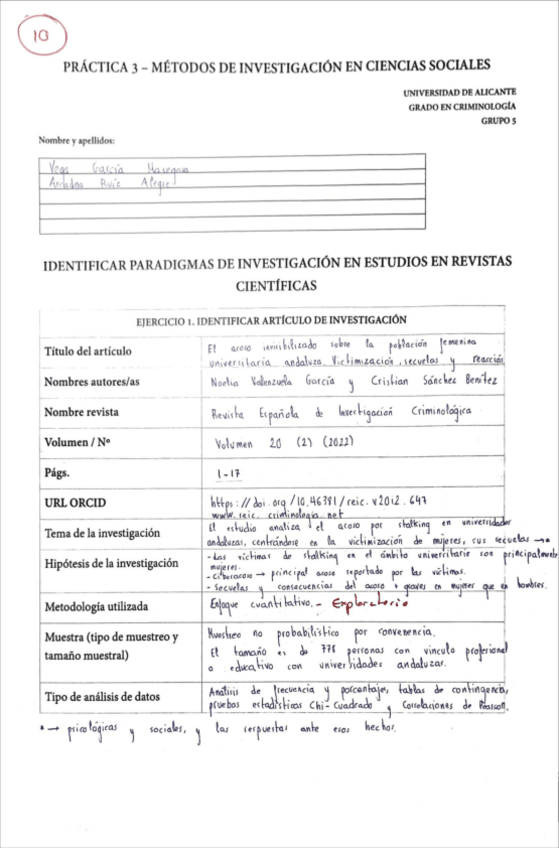 10
PRÁCTICA 3 – MÉTODOS DE INVESTIGACIÓN EN CIENCIAS SOCIALES
UNIVERSIDAD DE ALICANTE
GRADO EN CRIMINOLOGÍA
GRUPO 5
Nombre y apellidos:
Vega García Masegosa
Ariadna Ruiz Alegre
IDENTIFICAR PARADIGMAS DE INVESTIGACIÓN EN ESTUDIOS EN REVISTAS
CIENTÍFICAS
EJERCICIO 1. IDENTIFICAR ARTÍCULO DE INVESTIGACIÓN
Título del artículo
El acoso invisibilizado sobre la población femenina
universitaria andaluza. Victimización, secuelas y reacción
Nombres autores/as
Noelia Valenzuela García y Cristian Sánchez Benítez
Nombre revista
Revista Española de Investigación Criminológica
Volumen / Nº
Volumen 20 (2) (2022)
Págs.
1-17
URL ORCID
https://doi.org/10.46381/reic.v20i2.647
www.reic.criminologia.net
Tema de la investigación
El estudio analiza el acoso por stalking en universidades
andaluzas, centrándose en la victimización de mujeres, sus secuelas →*
Hipótesis de la investigación
- Las víctimas de stalking en el ámbito universitario son principalmente
mujeres.
- Ciberacoso → principal acoso reportado por las víctimas.
- Secuelas y consecuencias del acoso + graves en mujeres que en hombres.
Metodología utilizada
Enfoque cuantitativo. - Exploratorio
Muestra (tipo de muestreo y
tamaño muestral)
Muestreo no probabilístico por convenencia.
El tamaño es de 775 personas con vínculo profesional
o educativo con universidades andaluzas.
Tipo de análisis de datos
Análisis de frecuencia y porcentajes, tablas de contingencia,
pruebas estadísticas Chi-Cuadrado y Correlaciones de Pearson.
* → psicológicas y sociales, y las respuestas ante esos hechos.